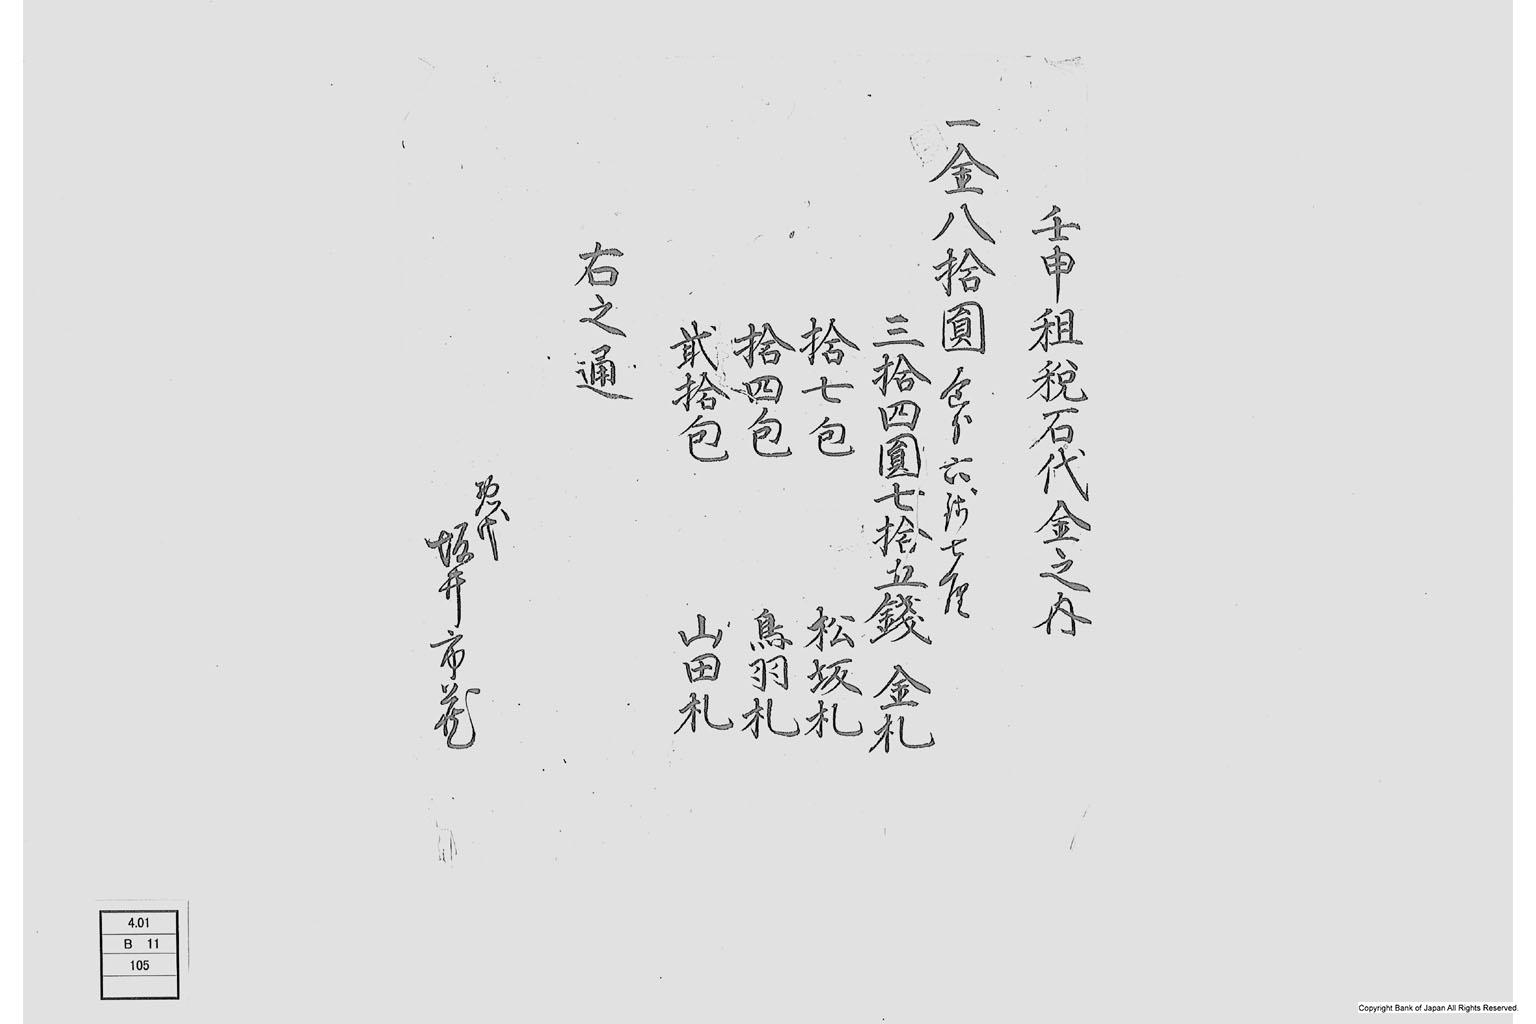 壬申租税石代金之内
一金八拾圓 包下六銭七厘
三拾四圓七拾五錢 金札
拾七包 松坂札
拾四包 鳥羽札
貮拾包 山田札
右之通
惣代
坂井市蔵
4.01
B 11
105
Copyright Bank of Japan All Rights Reserved.